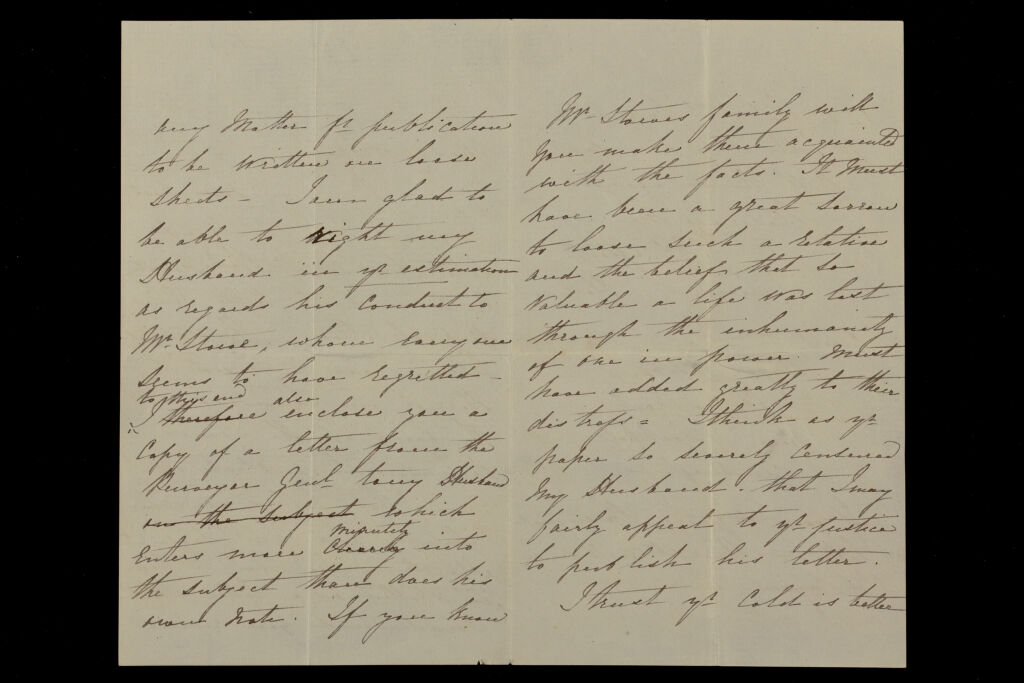 any Matter fr publication
to be written on loose
Sheets - I am glad to
be able to right my
Husband in yr estimation
as regards his conduct to
Mr. Stowe, whom every one
seems to have regretted -
to this end also
I therefore enclose you a
Copy of a letter from the
Purveyor Genl. to my Husband
on the subject which
minutely
Enters more Clearly into
the subject than does his
own note. If you know
Mr. Stowes family will
you make them acquainted
with the facts. It Must
have been a great sorrow
to loose such a relative
and the belief that so
valuable a life was lost
through the inhumanity
of one in power. Must
have added greatly to their
distress = I think as yr
paper so severely censured
My Husband. that I may
fairly appeal to yr justice
to publish his letter.
I trust yr Cold is better